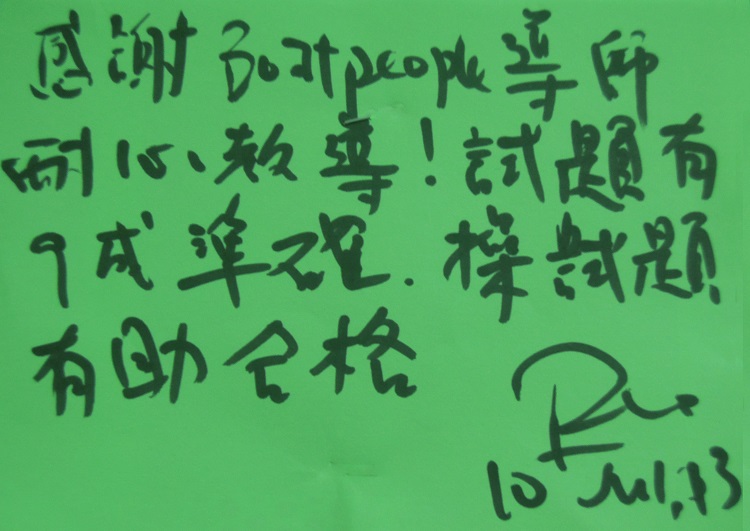 感謝 Boatpeople 導師
耐心教導！試題有
9成準確．操試題
有助合格
10